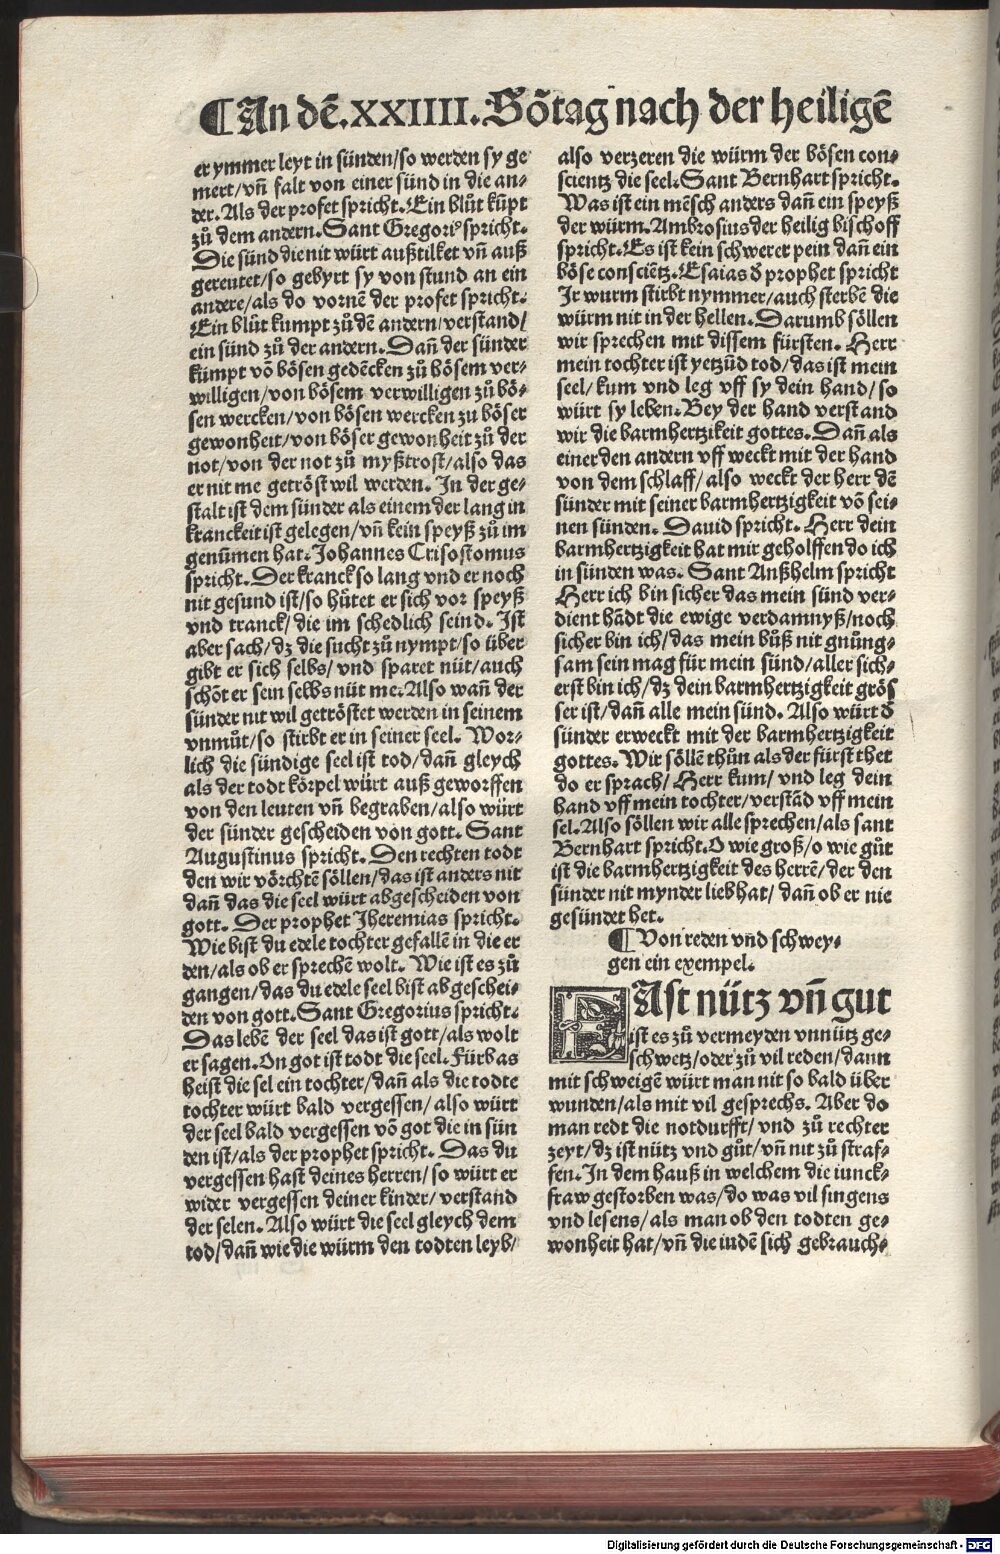 ¶An dē.XXIIII.Sōtag nach der heiligē
er ymmer leyt in sünden/so werden sy ge
mert/vñ falt von einer sünd in die an⸗
der.Als der profet spricht.Ein blůt kūpt
zů dem andern.Sant Gregoriꝰ spricht.
Die sünd die nit würt außtilket vñ auß
gereutet/so gebyrt sy von stund an ein
andere/als do vornē der profet spricht.
Ein blůt kumpt zů dē andern/verstand/
ein sünd zů der andern.Dañ der sünder
kümpt vō bösen gedēcken zů bösem ver⸗
willigen/von bösem verwilligen zů bö⸗
sen wercken/von bösen wercken zu böser
gewonheit/von böser gewonheit zů der
not/von der not zů myßtrost/also das
er nit me getröst wil werden. In der ge⸗
stalt ist dem sünder als einem der lang in
kranckeit ist gelegen/vñ kein speyß zů im
genūmen hat.Johannes Crisostomus
spricht.Der kranck so lang vnd er noch
nit gesund ist/so hůtet er sich vor speyß
vnd tranck/die im schedlich seind. Ist
aber sach/dz die sucht zů nympt/so über
gibt er sich selbs/vnd sparet nüt/auch
schōt er sein selbs nüt me.Also wañ der
sünder nit wil getröstet werden in seinem
vnmůt/so stirbt er in seiner seel. Wor⸗
lich die sündige seel ist tod/dañ gleych
als der todt körpel würt auß geworffen
von den leuten vñ begraben/also würt
der sünder gescheiden von gott. Sant
Augustinus spricht.Den rechten todt
den wir vörchtē söllen/das ist anders nit
dañ das die seel würt abgescheiden von
gott. Der prophet Jheremias spricht.
Wie bist du edele tochter gefallē in die er
den/als ob er sprechē wolt. Wie ist es zů
gangen/das du edele seel bist abgeschei⸗
den von gott.Sant Gregorius spricht.
Das lebē der seel das ist gott/als wolt
er sagen.On got ist todt die seel.Fürbas
heist die sel ein tochter/dañ als die todte
tochter würt bald vergessen/also würt
der seel bald vergessen vō got die in sün
den ist/als der prophet spricht. Das du
vergessen hast deines herren/so würt er
wider vergessen deiner kinder/verstand
der selen. Also würt die seel gleych dem
tod/dañ wie die würm den todten leyb/
also verzeren die würm der bösen con⸗
scientz die seel.Sant Bernhart spricht.
Was ist ein mēsch anders dañ ein speyß
der würm.Ambrosius der heilig bischoff
spricht.Es ist kein schwerer pein dañ ein
böse consciētz.Esaias ď prophet spricht
Ir wurm stirbt nymmer/auch sterbē die
würm nit in der hellen.Darumb söllen
wir sprechen mit dissem fürsten. Herr
mein tochter ist yetzūd tod/das ist mein
seel/kum vnd leg vff sy dein hand/so
würt sy leben.Bey der hand verstand
wir die barmhertzikeit gottes.Dañ als
einer den andern vff weckt mit der hand
von dem schlaff/also weckt der herr dē
sünder mit seiner barmhertzigkeit vō sei⸗
nen sünden. Dauid spricht. Herr dein
barmhertzigkeit hat mir geholffen do ich
in sünden was. Sant Anßhelm spricht
Herr ich bin sicher das mein sünd ver⸗
dient hādt die ewige verdamnyß/noch
sicher bin ich/das mein bůß nit gnůng⸗
sam sein mag für mein sünd/aller sich⸗
erst bin ich/dz dein barmhertzigkeit grös
ser ist/dañ alle mein sünd. Also würt ď
sünder erweckt mit der barmhertzigkeit
gottes. Wir söllē thůn als der fürst thet
do er sprach/Herr kum/vnd leg dein
hand vff mein tochter/verstād vff mein
sel.Also söllen wir alle sprechen/als sant
Bernhart spricht.O wie groß/o wie gůt
ist die barmhertzigkeit des herrē/der den
sünder nit mynder lieb hat/dañ ob er nie
gesündet het.
¶Von reden vnd schwey⸗
gen ein exempel.
FAst nütz vñ gut
ist es zů vermeyden vnnütz ge⸗
schwetz/oder zů vil reden/dann
mit schweigē würt man nit so bald über
wunden/als mit vil gesprechs. Aber do
man redt die notdurfft/vnd zů rechter
zeyt/dz ist nütz vnd gůt/vñ nit zů straf⸗
fen.In dem hauß in welchem die iunck⸗
fraw gestorben was/do was vil singens
vnd lesens/als man ob den todten ge⸗
wonheit hat/vñ die iudē sich gebrauch⸗
Digitalisierung gefördert durch die Deutsche Forschungsgemeinschaft - DFG